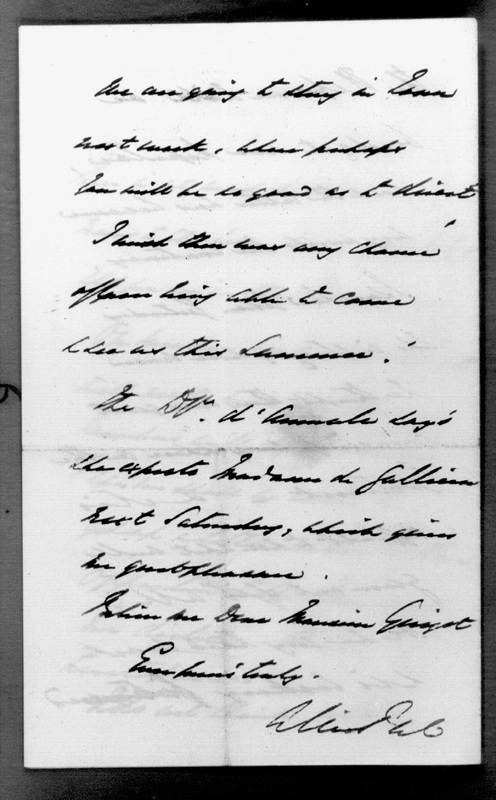 We are going to stay in Town
next week, where perhaps
you will be so good as to direct
I wish there was any chance
of your being able to come
& see us this Summer!
The Dss. d'Aumale says
she expects Madame de Gallieni
next Saturday, which gives
me great pleasure.
Believe me Dear Monsieur Guizot
Yours most truly.